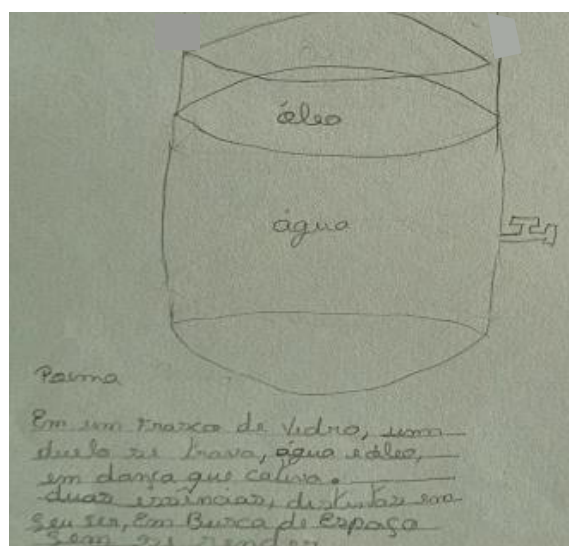 óleo
água
Poema
Em um Frasco de Vidro, um
duelo se trava, água e óleo,
em dança que cativa.
duas essências, distintas em
seu ser, Em Busca de Espaço
Sem se render